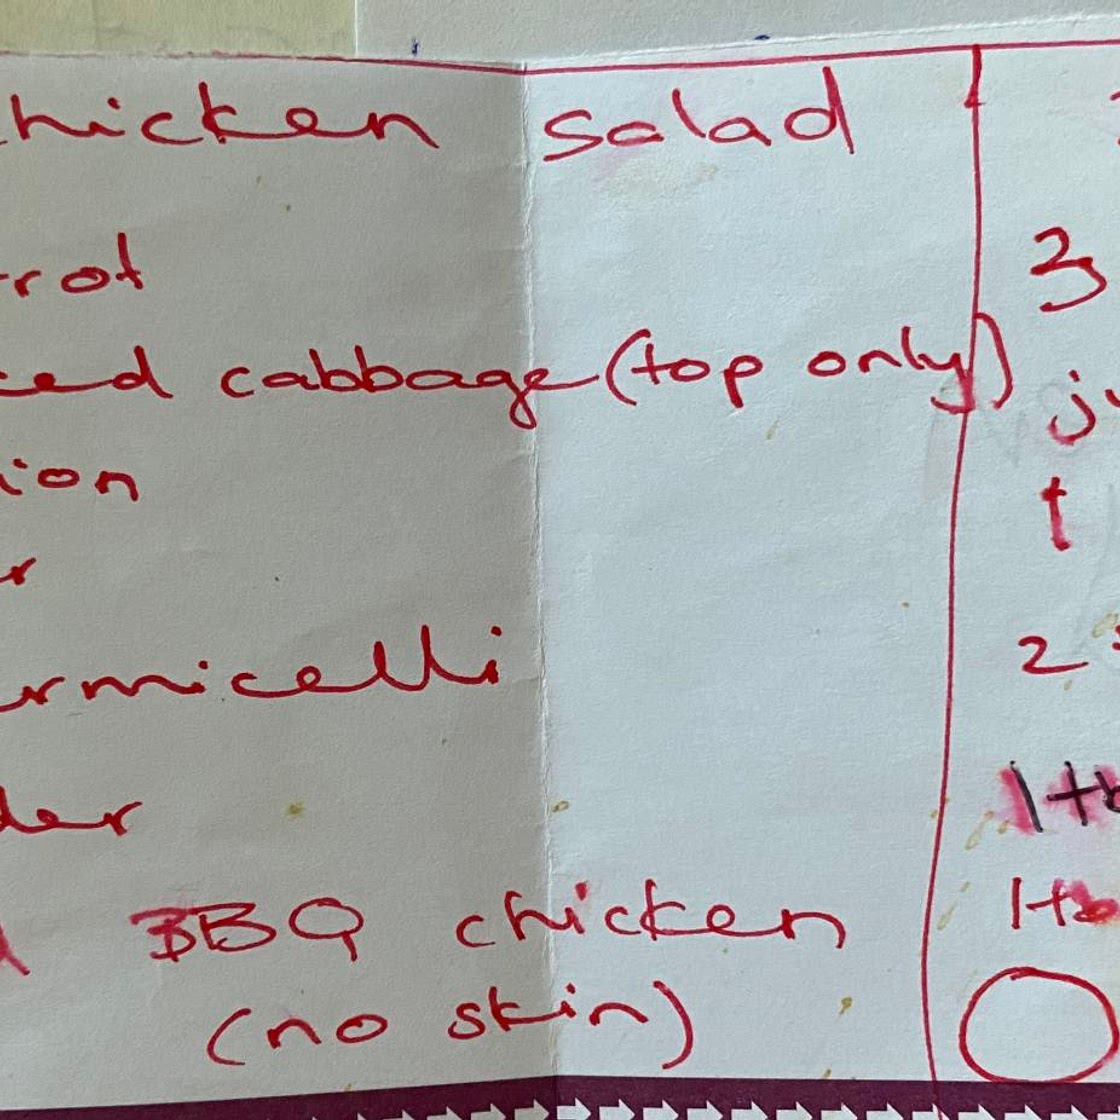 chicken salad
rot
ced cabbage (top only)
ion
r
ermicelli
der
BBQ chicken
(no skin)
3
ju
t
2
1 tb
1 tb